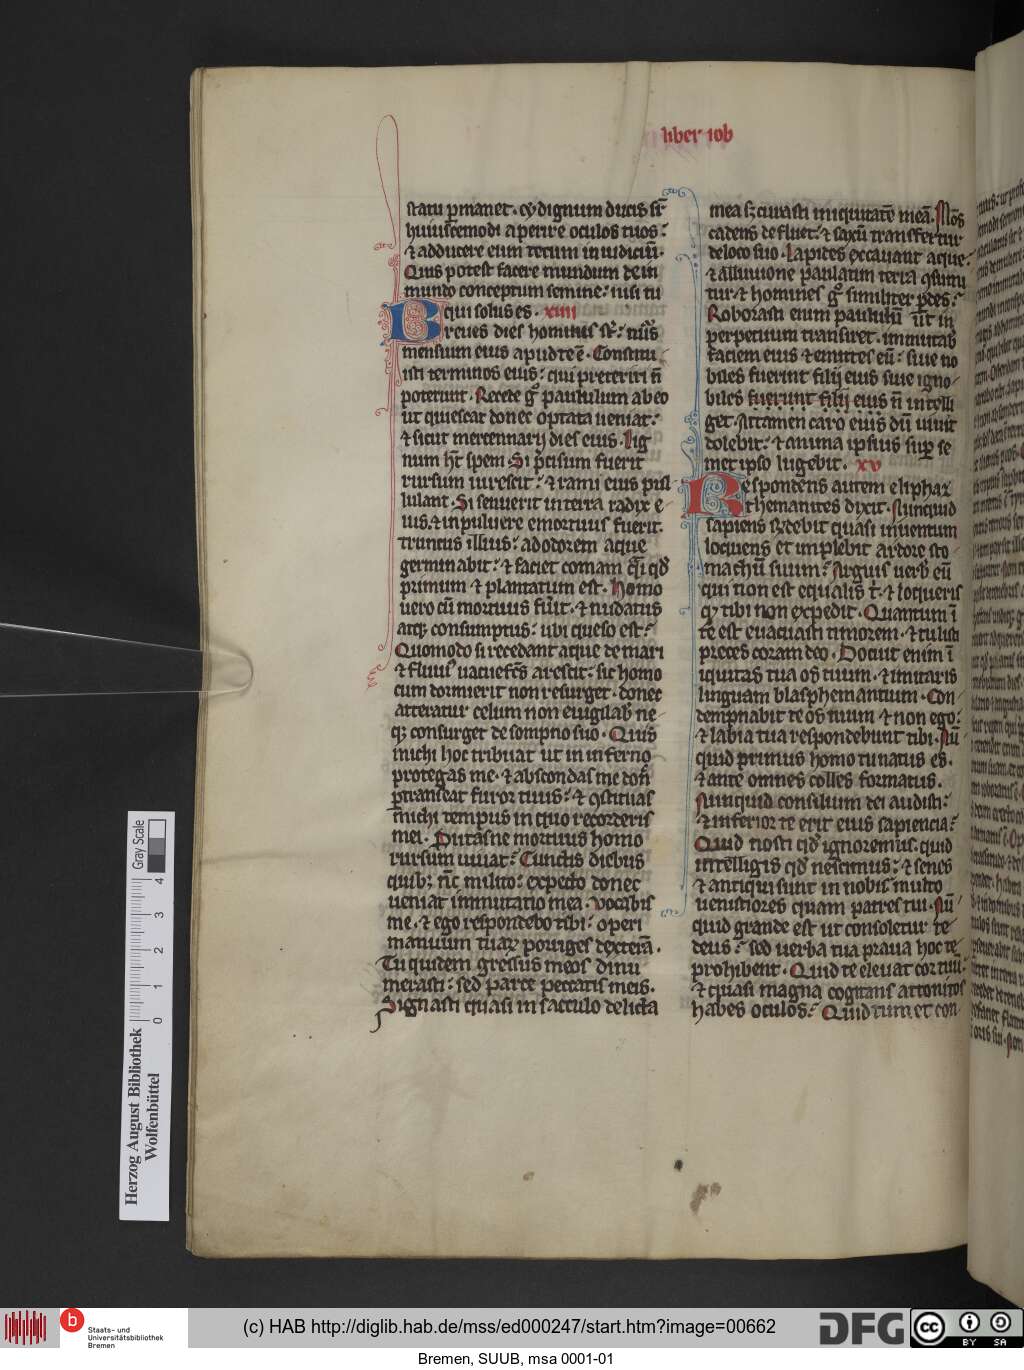 liber iob
statu ꝑmanet · et dignum ducis sr̄
huiuscemodi aperire oculos tuos ·
⁊ adducere eum tecum in iudiciū ·
Quis potest facere mundum de in
mundo conceptum semine : nisi tu
qui solus es · xiiii
Breues dies hominis st̄ : nūs
mensium eius apud te ē · Constitu
isti terminos eius : qui preteriri n̄
poterunt · Recede gͦ paululum ab eo
ut quiescat donec optata ueniat :
⁊ sicut mercennarij dies eius · Lig
num ht̄ spem · Si p̄cisum fuerit
rursum uirescit : ⁊ rami eius pul
lulant · Si senuerit in terra radix e
ius · ⁊ in puluere emortuus fuerit ·
truncus illius : ad odorem aque
germinabit : ⁊ faciet comam qͣi qd̄
primum ⁊ plantatum est · Homo
uero cū mortuus fūit · ⁊ nudatus
atqꝫ consumptus : ubi queso est :
Quomodo si recedant aque de mari
⁊ fluuiꝰ uacuefcs̄ arescit : sic homo
cum dormierit non resurget · donec
atteratur celum non euigilab̄ ne
qꝫ consurget de sompno suo · Quis
michi hoc tribuat ut in inferno
protegas me · ⁊ abscondas me don̄
ꝑtranseat furor tuus : ⁊ ꝯstituas
michi tempus in quo recorderis
mei · Putasne mortuus homo
rursum uiuat : Cunctis diebus
quibꝫ nc̄ milito : expecto donec
ueniat immutatio mea · Vocabis
me · ⁊ ego respondebo tibi : operi
manuum tuaꝝ porriges dexterā ·
Tu quidem gressus meos dinu
merasti : sed parce peccatis meis ·
Signasti quasi in sacculo delicta
mea sꝫ curasti iniquitatē meā · Mōs
cadens defluet : ⁊ saxū transfertur
de loco suo · Lapides excauant aque :
⁊ alluuione paulatim terra ꝯsumi
tur · ⁊ homines gͦ similiter ꝑdes :
Roborasti eum paululū ut in
perpetuum transiret · immutab̄
faciem eius ⁊ emittes eū : siue no
biles fuerint filij eius siue igno
biles fuerunt filij eius n̄ intelli
get · Attamen caro eius dū uiuit
dolebit : ⁊ anima ipsius suꝑ se
met ipso lugebit · xv
Respondens autem eliphaz
themanites dixit · Nunquid
sapiens rn̄debit quasi in uentum
loquens et implebit ardore sto
machum suum : Arguis uerb̄ eū
qui non est equalis t̄ · ⁊ loqueris
qꝫ tibi non expedit · Quantum ī
te est euacuasti timorem · ⁊ tulisti
preces coram deo · Docuit enim ī
iquitas tua os tuum · ⁊ imitaris
linguam blasphemantium · Con
dempnabit te os tuum ⁊ non ego :
⁊ labia tua respondebunt tibi · Nū
quid primus homo tu natus es ·
⁊ ante omnes colles formatus ·
Nunquid consilium dei audisti :
⁊ inferior te erit eius sapiencia :
Quid nosti qd̄ ignoremus · quid
intelligis qd̄ nescimus : ⁊ senes
⁊ antiqui sunt in nobis multo
uenistiores quam patres tui · Nū
quid grande est ut consoletur te
deus : sed uerba tua praua hoc te
prohibent · Quid te eleuat cor tuū ·
⁊ quasi magna cogitans attonitos
habes oculos : Quid tumet con
Herzog August Bibliothek
Wolfenbüttel
Gray Scale
0 1 2 3 4
b
Staats- und
Universitätsbibliothek
Bremen
(c) HAB http://diglib.hab.de/mss/ed000247/start.htm?image=00662
DFG
cc
BY SA
Bremen, SUUB, msa 0001-01